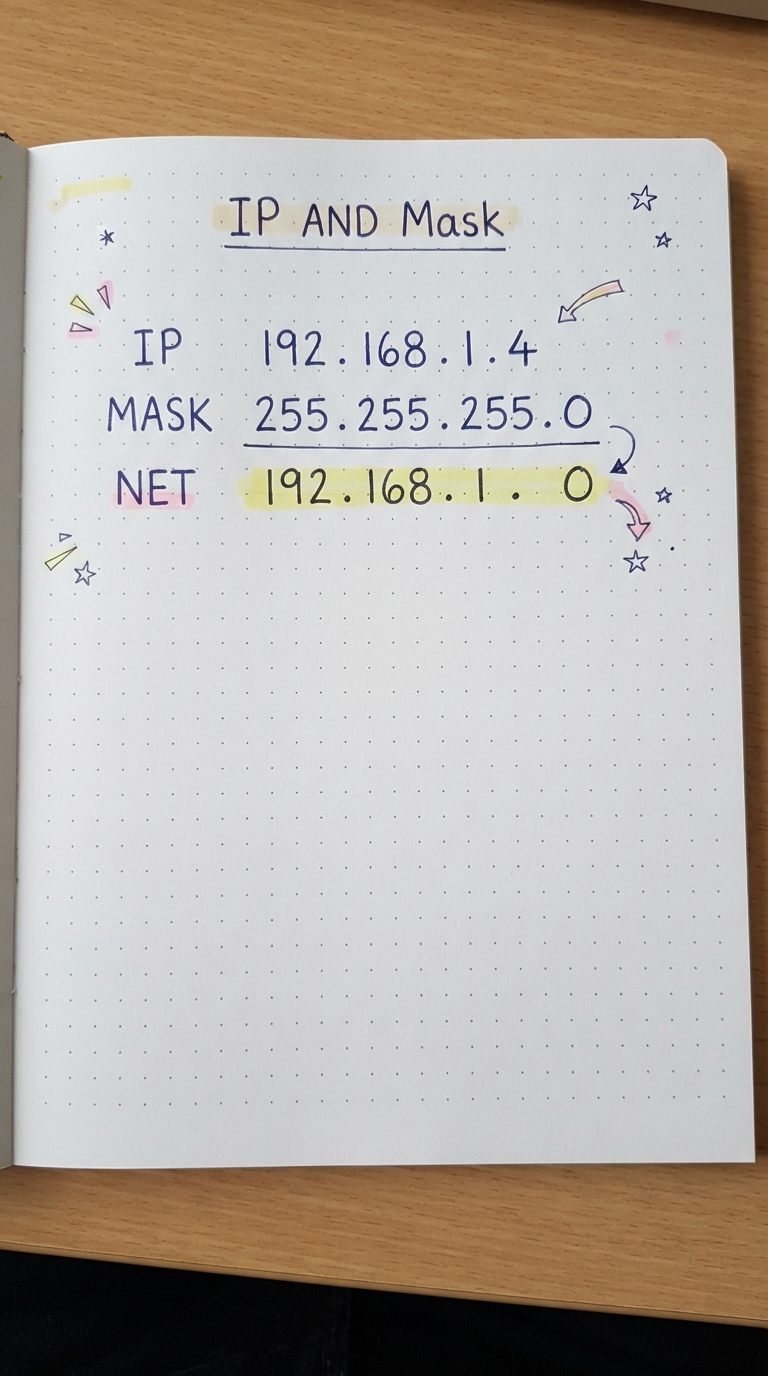 IP AND Mask
IP 192.168.1.4
MASK 255.255.255.0
NET 192.168.1. 0